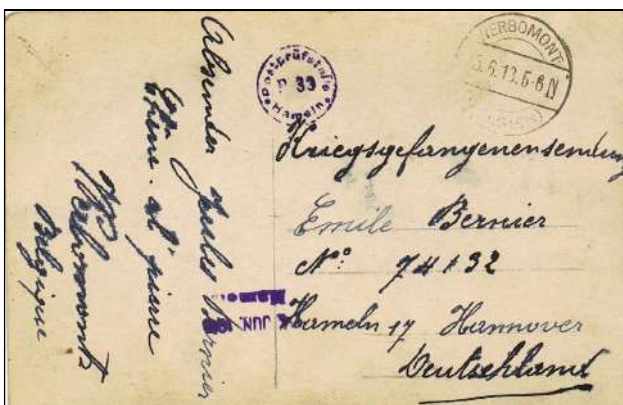 Absender Jules Bernier
Werbomont
Belgique
Postprüfstelle
P 33
Hameln
WERBOMONT
Kriegsgefangenensendung
Emile Bernier
N° 74132
Hameln 17 Hannover
Deutschland
Hameln
JUN. 191